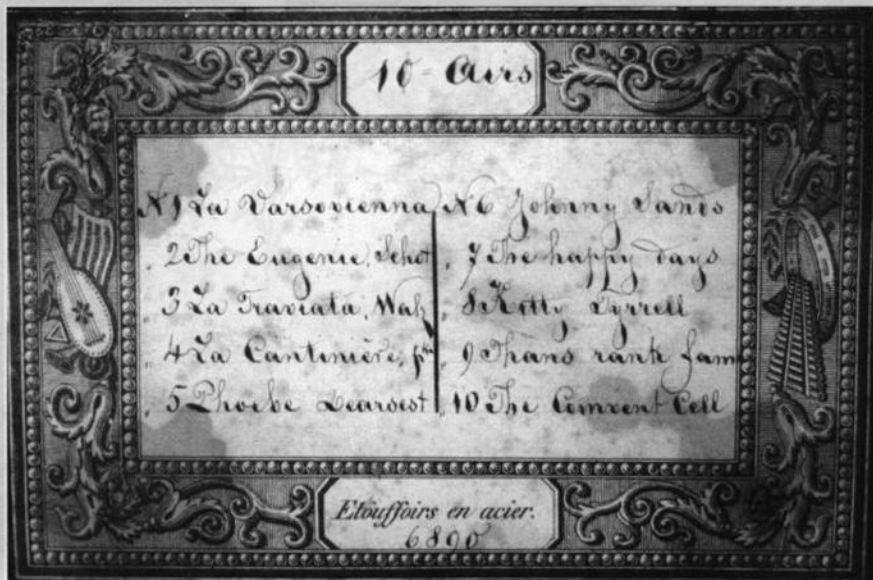 10 - Airs
N 1 La Varsovienna
" 2 The Eugenie, Schot
" 3 La Traviata, Walz
" 4 La Cantinière,
" 5 Phoebe Dearsest
N 6 Johnny Sands
" 7 The happy days
" 8 Ketty Tyrrell
" 9 Thans rank fam
" 10 The Comvent Cell
Etouffoirs en acier.
6890